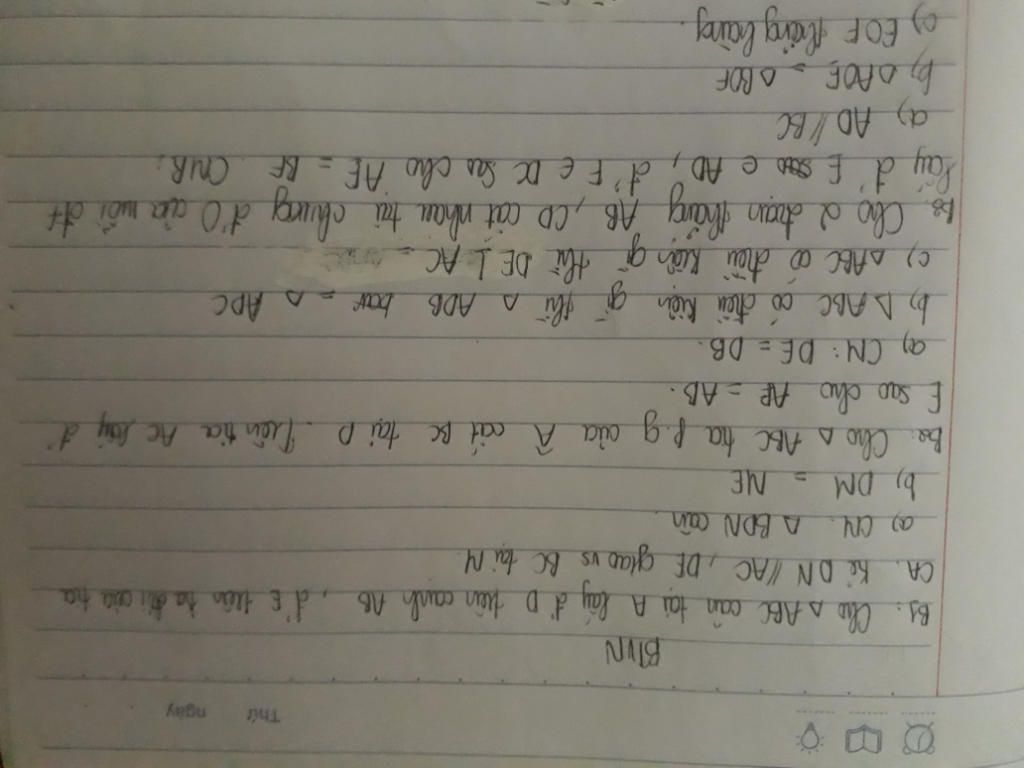 Thứ ngày
BTVN
B1: Cho △ ABC cân tại A lấy đ' D trên cạnh AB, đ' E trên tia đối của tia
CA. kẻ DN // AC, DE giao vs BC tại M
a) CM: △ BDN cân.
b) DM = ME
Cho △ ABC tia p.g của Â cắt BC tại D. Trên tia AC lấy đ'
E sao cho AE = AB.
a) CM: DE = DB.
b) △ ABC có điều kiện gì thì △ ADB = △ ADC
c) △ ABC có điều kiện gì thì DE ⊥ AC
Cho 2 đoạn thẳng AB, CD cắt nhau tại trung đ' O của mỗi đt
Lấy đ' E ∈ AD, đ' F ∈ sao cho AE = BF. CMR:
a) AD // BC
b) △ AOE = △ BOF
c) EOF thẳng hàng.